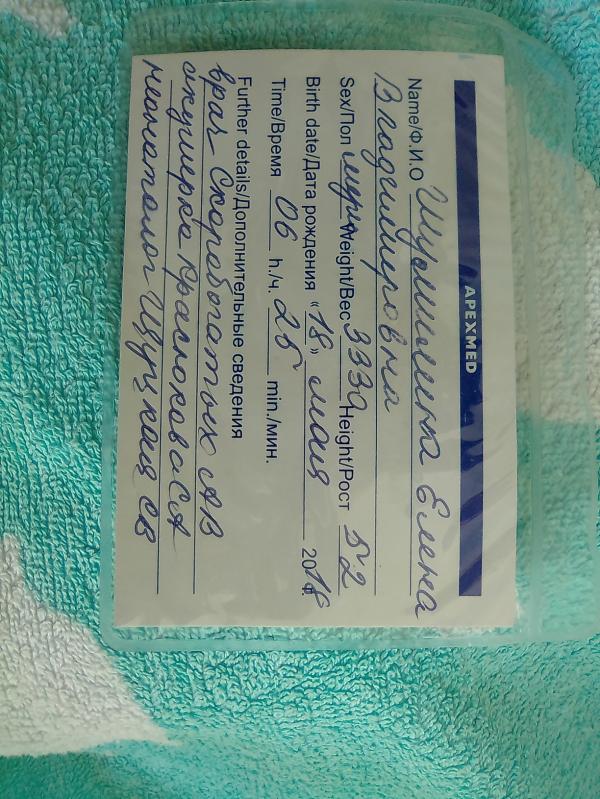 APEXMED
Name/Ф.И.О Шумилина Елена
Владимировна
Sex/Пол муж Weight/Вес 3330 Height/Рост 52
Birth date/Дата рождения "18" мая 2018
Time/Время 06 h./ч. 25 min./мин.
Further details/Дополнительные сведения
врач Скоробогатых АВ
акушерка Краснокова СА
неонатолог СВ